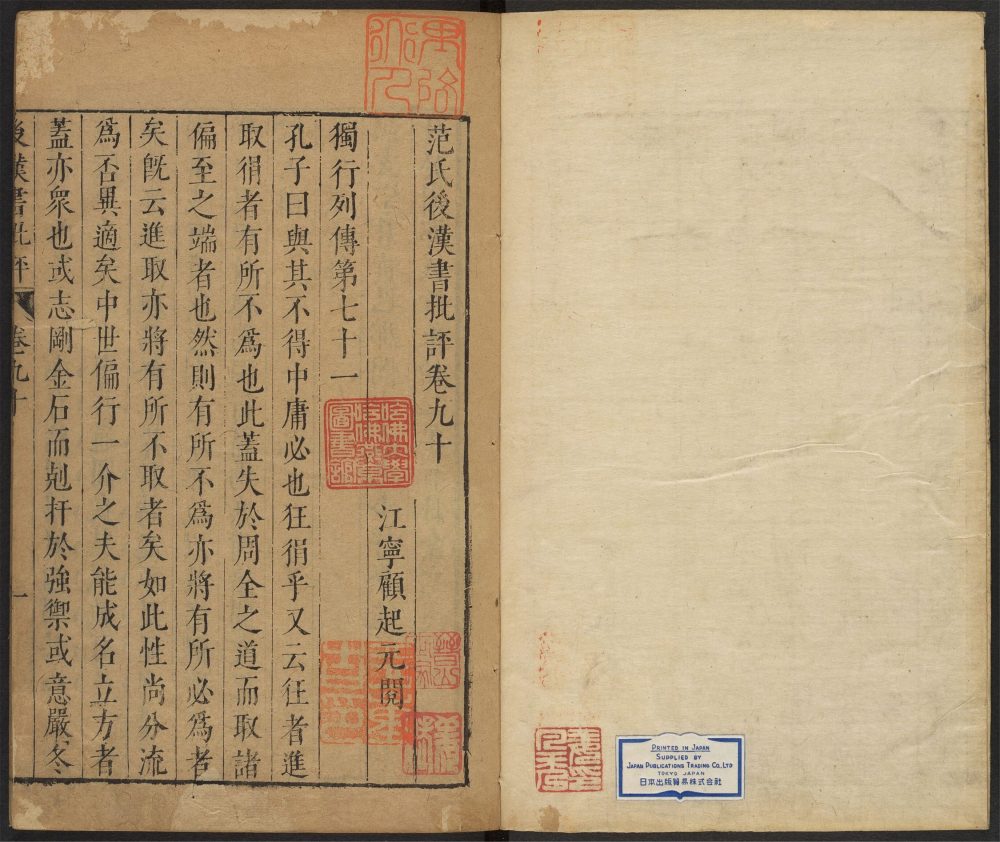 范氏後漢書批評卷九十
江寧顧起元閱
獨行列傳第七十一
孔子曰與其不得中庸必也狂狷乎又云狂者進
取狷者有所不爲也此蓋失於周全之道而取諸
偏至之端者也然則有所不爲亦將有所必爲者
矣旣云進取亦將有所不取者矣如此性尚分流
爲否異適矣中世偏行一介之夫能成名立方者
蓋亦衆也或志剛金石而剋扞於強禦或意嚴冬
後漢書批評 卷九十 一
哈佛大學
哈佛燕京
圖書館
PRINTED IN JAPAN
SUPPLIED BY
JAPAN PUBLICATIONS TRADING CO., LTD
TOKYO JAPAN
日本出版貿易株式会社